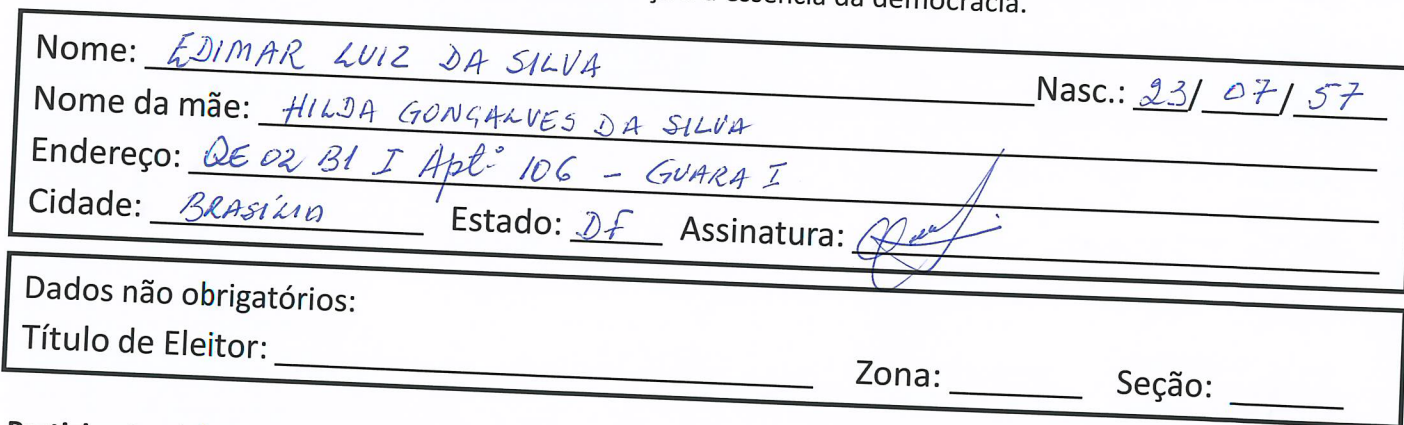 essência da democracia.
Nome: EDIMAR LUIZ DA SILVA Nasc.: 23/07/57
Nome da mãe: HILDA GONÇALVES DA SILVA
Endereço: QE 02 Bl I Aptº 106 - GUARA I
Cidade: BRASÍLIA Estado: DF Assinatura:
Dados não obrigatórios:
Título de Eleitor: Zona: Seção: